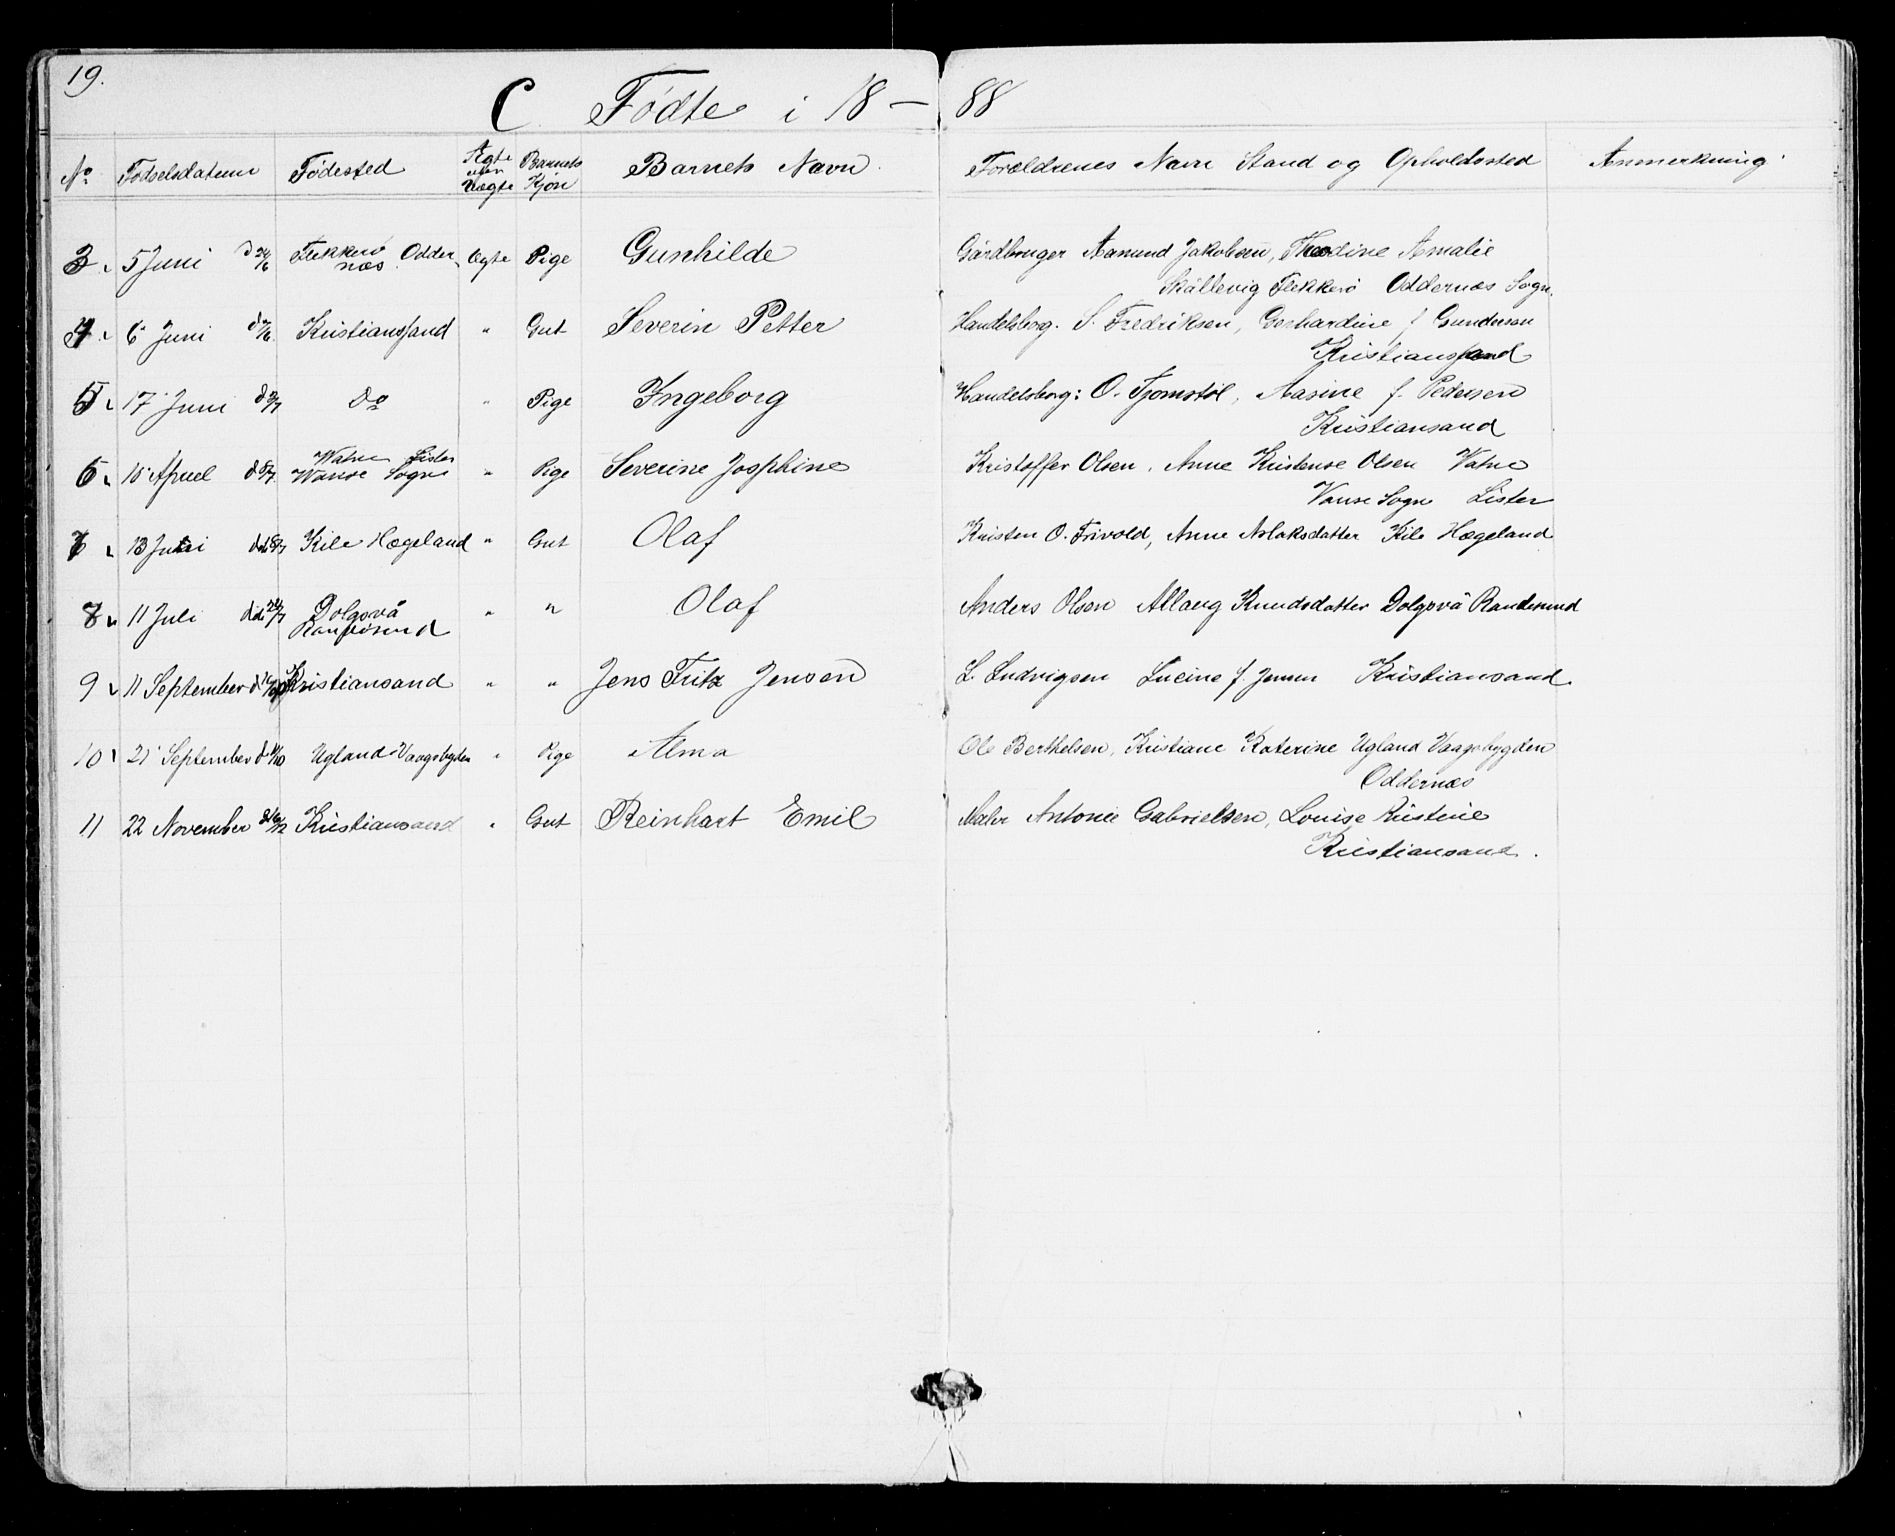 19.
C Fødte i 18 — 88
No Fødselsdatum Fødested Ægte eller Uægte Barnets Kjøn Barnets Navn Forældrenes Navn Stand og Opholdssted Anmerkning
3. 5 Juni Flekkerö Odder Ægte Pige Gunhilde Gårdbruger Aanund Jakobsen, Theodine Amalie
næs. Skållevig Flekkerö Oddernæs Sogn.
4. 6 Juni Kristianssand " Gut Severin Petter Handelsborg. S. Fredriksen, Gerhardine f Gundersen
Kristianssand
5 17 Juni Do " Pige Ingeborg Handelsborg: O. Tjomstöl, Aasine f. Pedersen
Kristiansand
Watne Lister
6 April Wanse Sogn " Pige Severine Josphine Kristoffer Olsen, Anne Kristense Olsen Vatne
Vanse Sogn Lister
7 13 Kile Hægeland " Gut Olaf Kristen O. Trivold, Anne Aslaksdatter Kile Hægeland
8 11 Juli Dolgsvå " " Olaf Anders Olsen Allaug Knudsdatter Dolgsvå Randesund
9 11 September Kristiansand " " Jens Fritz Jensen L. Ludvigsen Lucine f. Jensen Kristiansand
10 21 September Ugland Vaagsbygden " Pige Alma Ole Berthelsen, Kristiane Katerine Ugland Vaagsbygden
Oddernæs
11 22 November Kristiansand " Gut Reinhart Emil Maler Antonie Gabrielsen, Louise Kristine
Kristiansand.